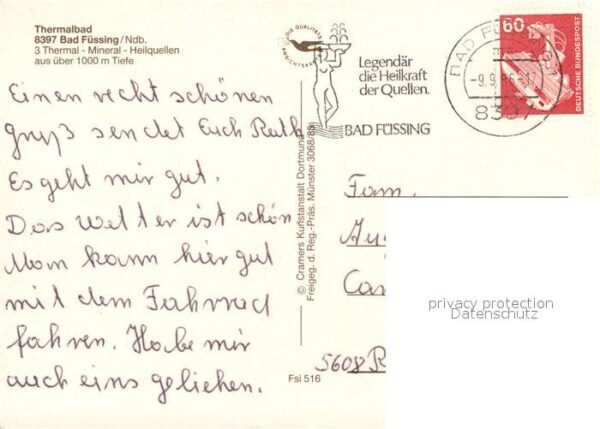 Thermalbad
8397 Bad Füssing/Ndb.
3 Thermal - Mineral - Heilquellen
aus über 1000 m Tiefe
Einen recht schönen
gruß sendet Euch Ruth
Es geht mir gut.
Das Wetter ist schön
Man kann hier gut
mit dem Fahrrad
fahren. Habe mir
auch eins geliehen.
© Cramers Kunstanstalt Dortmund
Freigeg. d. Reg.-Präs. Münster 3068/85
Fsi 516
DIE QUALITÄTS
ANSICHTSKARTE
Legendär
die Heilkraft
der Quellen.
BAD FÜSSING
BAD FÜ
-9.9.86-17
8397
60
DEUTSCHE BUNDESPOST
Fam.
5608 R
privacy protection
Datenschutz